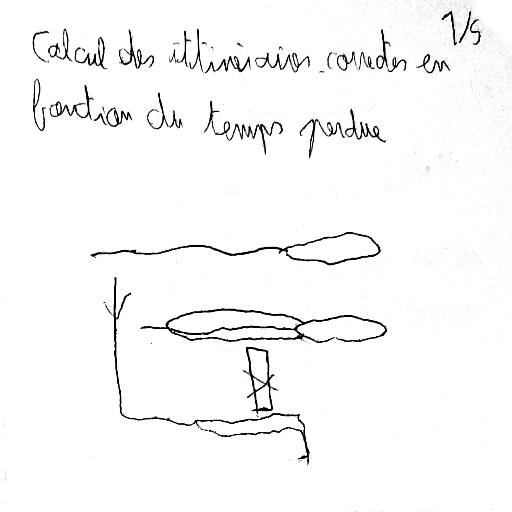 1/5
Calcul des ittinéraires correctes en
fonction du temps perdue